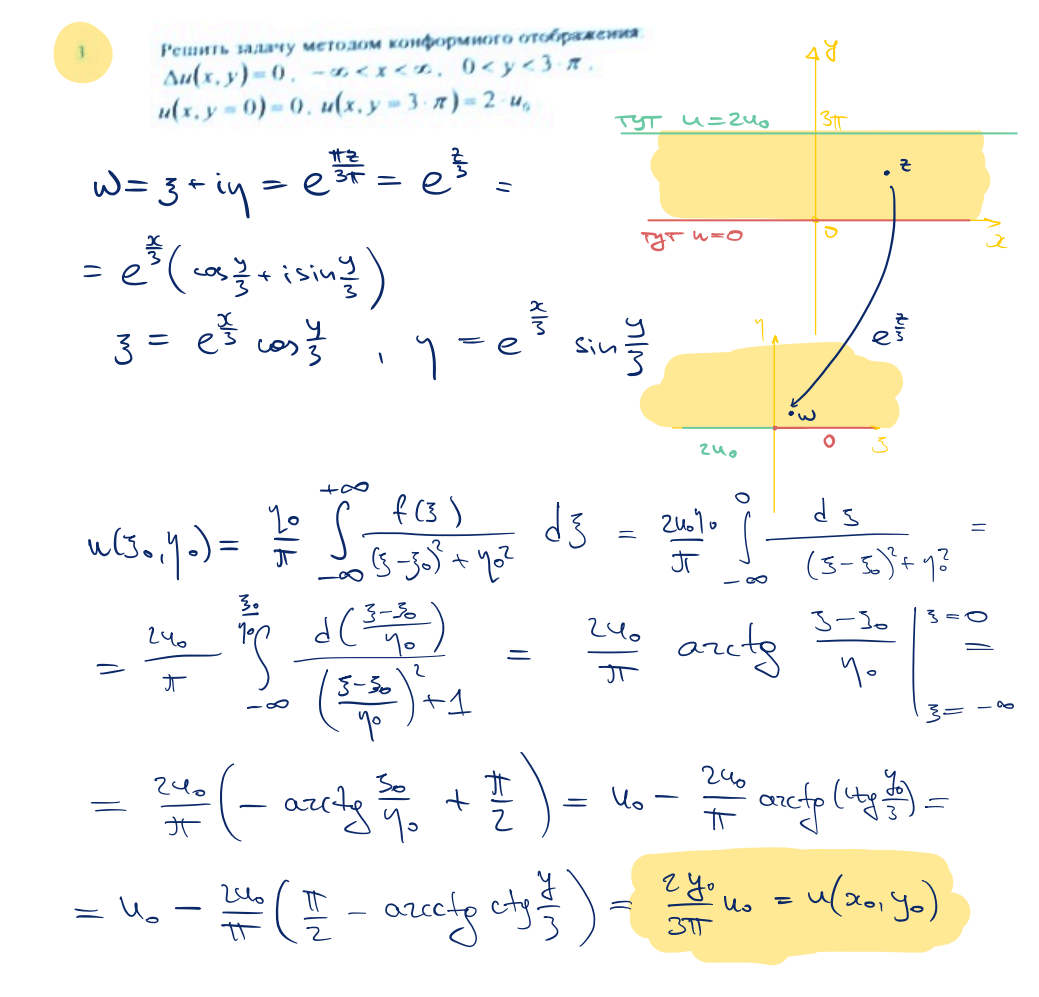 1
Решить задачу методом конформного отображения
Δu(x, y) = 0, −∞ < x < ∞, 0 < y < 3 · π.
u(x, y = 0) = 0, u(x, y = 3 · π) = 2 · u₀
y
тут u = 2u₀
3π
z
тут u = 0
0
x
w = ξ + iη = e^{πz/3π} = e^{z/3} =
= e^{x/3} (cos y/3 + i sin y/3)
ξ = e^{x/3} cos y/3 , η = e^{x/3} sin y/3
e^{z/3}
η
w
2u₀
0
ξ
u(ξ₀, η₀) = η₀/π ∫_{−∞}^{+∞} f(ξ)/((ξ−ξ₀)² + η₀²) dξ = 2u₀η₀/π ∫_{−∞}^{0} dξ/((ξ−ξ₀)² + η₀²) =
= 2u₀/π ∫_{−∞}^{ξ₀/η₀} d((ξ−ξ₀)/η₀)/(((ξ−ξ₀)/η₀)² + 1) = 2u₀/π arctg (ξ−ξ₀)/η₀ |_{ξ=−∞}^{ξ=0} =
= 2u₀/π (− arctg ξ₀/η₀ + π/2) = u₀ − 2u₀/π arctg (ctg y₀/3) =
= u₀ − 2u₀/π (π/2 − arcctg ctg y/3) = 2y₀/3π u₀ = u(x₀, y₀)